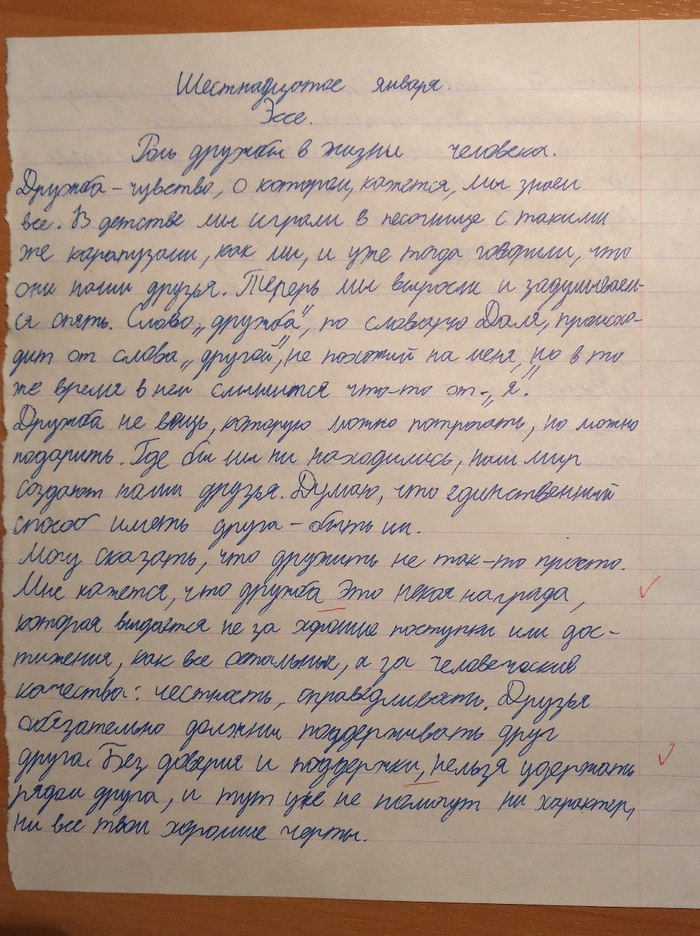 Шестнадцатое января.
Эссе.
Роль дружбы в жизни человека.
Дружба – чувство, о котором, кажется, мы знаем
все. В детстве мы играли в песочнице с такими
же карапузами, как мы, и уже тогда говорили, что
они наши друзья. Теперь мы выросли и задумываем-
ся опять. Слово „дружба", по словарю Даля, происхо-
дит от слова „другой", не похожий на меня, но в то
же время в нем слышится что-то от „я".
Дружба не вещь, которую можно потрогать, но можно
подарить. Где бы мы ни находились, наш мир
создают наши друзья. Думаю, что единственный
способ иметь друга – быть им.
Могу сказать, что дружить не так-то просто.
Мне кажется, что дружба это некая награда,
которая выдается не за хорошие поступки или дос-
тижения, как все остальные, а за человеческие
качества: честность, справедливость. Друзья
обязательно должны поддерживать друг
друга. Без доверия и поддержки, нельзя удержать
рядом друга, и тут уже не помогут ни характер,
ни все твои хорошие черты.